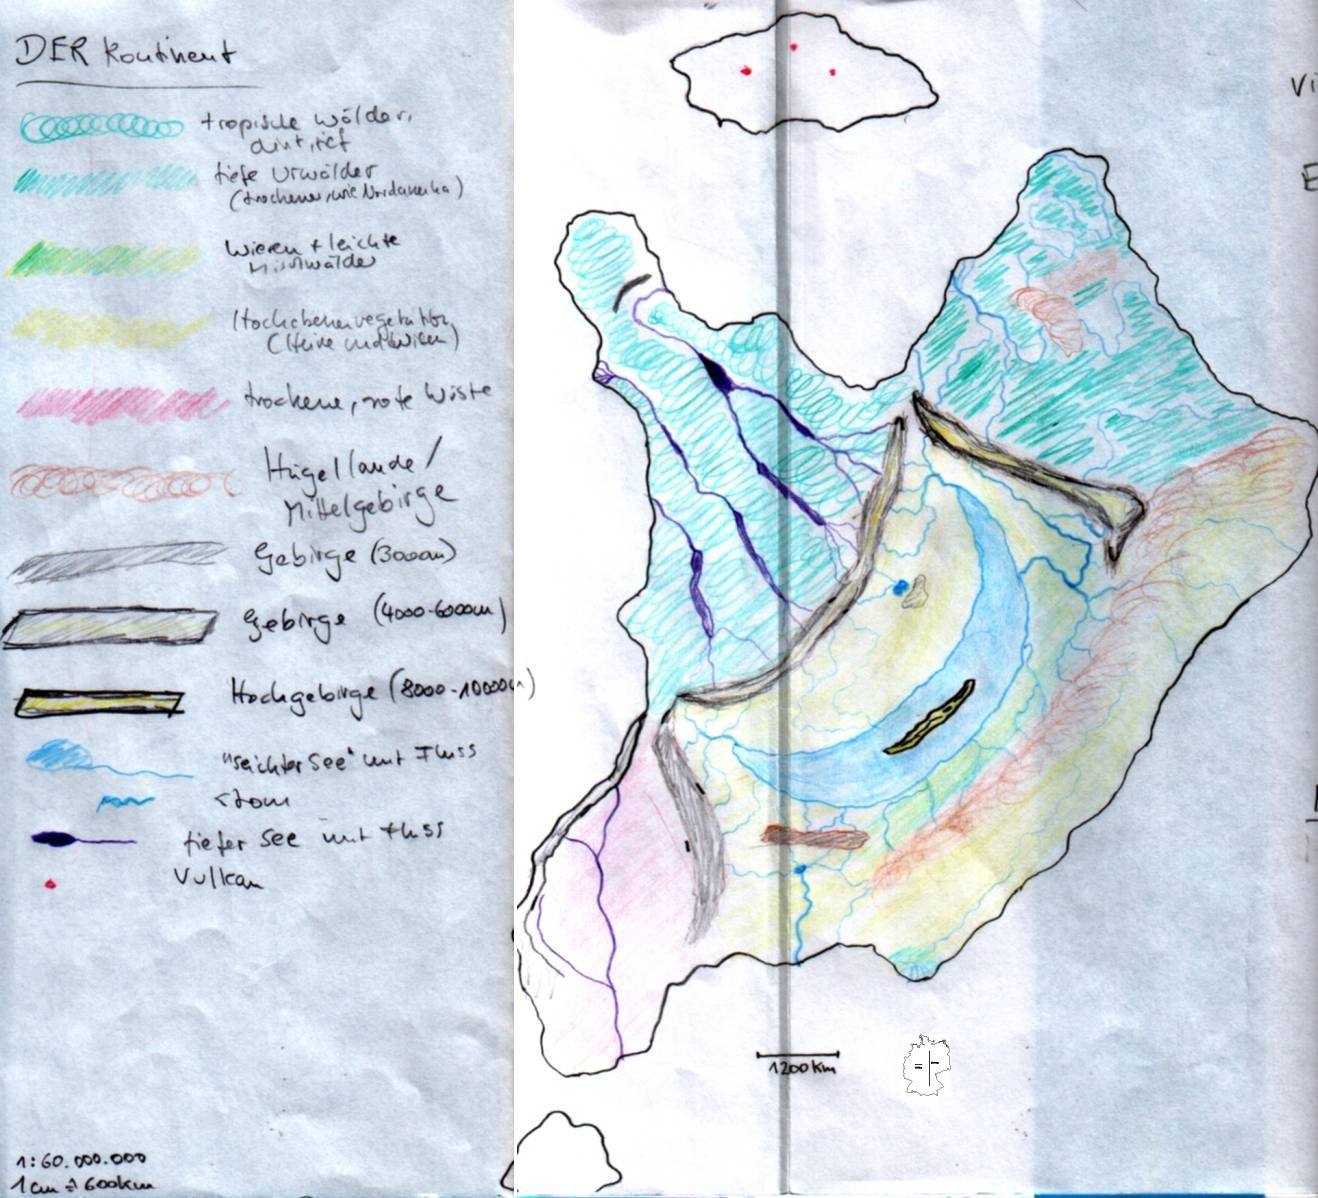 DER Kontinent
tropische Wälder,
tiefe Urwälder
(trockener, wie Nordamerika)
Wiesen + leichte
Mischwälder
Hochebenenvegetation
trockene, rote Wüste
Hügellande/
Mittelgebirge
Gebirge (3000m)
Gebirge (4000-6000m)
Hochgebirge (8000-10000m)
"seichter See" mit Fluss
Strom
tiefer See mit Fluss
Vulkan
1:60.000.000
1cm ≙ 600km
1200Km
Vi
E